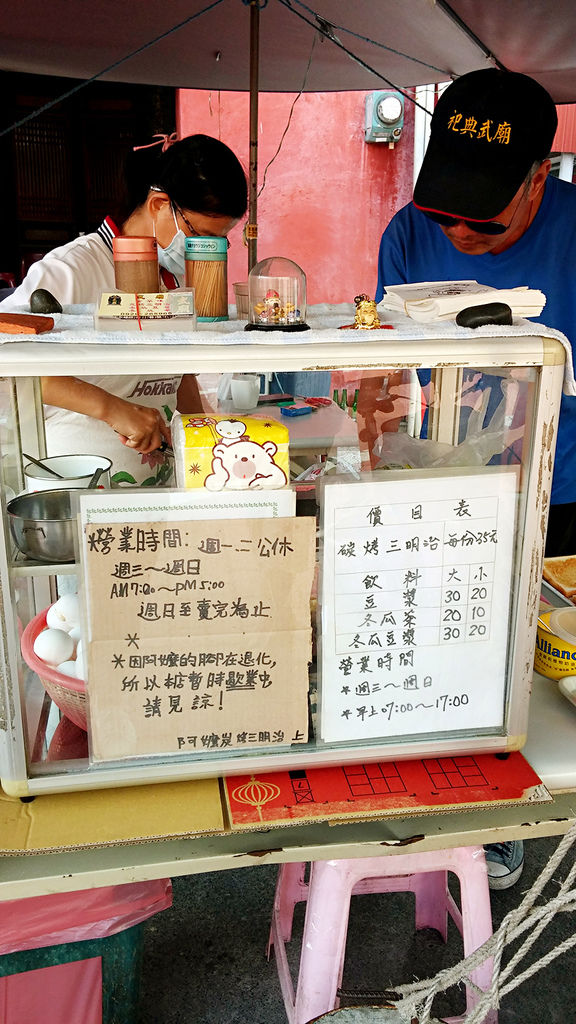 祀典武廟
Hokka
營業時間: 週一.二公休
週三～週日
AM7:00～PM5:00
週日至賣完為止
*
*因阿嬤的腳在退化,
所以本店暫時歇業中
請見諒!
阿嬤炭烤三明治 上
價目表
碳烤三明治 每份35元
飲料 大 小
豆漿 30 20
冬瓜茶 20 10
冬瓜豆漿 30 20
營業時間
*週三～週日
*早上07:00～17:00
Allianc